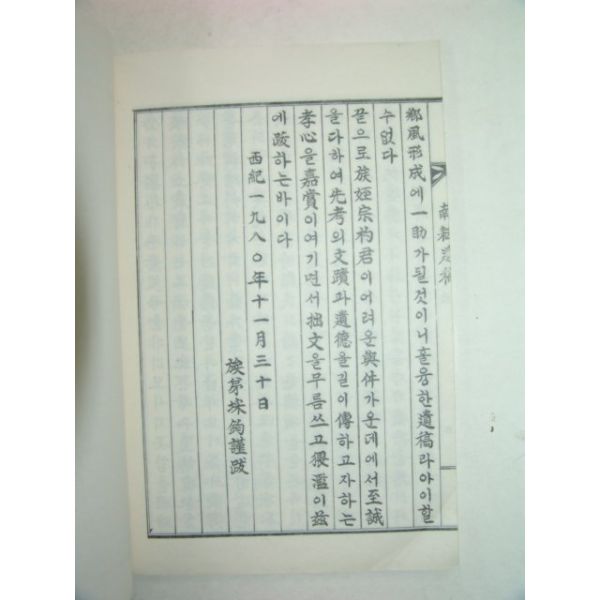 鄕風形成에一助가될것이니훌융한遺稿라아이할
수없다
끝으로族姪宗杓君이어려운與件가운데에서至誠
을다하여先考의文蹟과遺德을길이傳하고자하는
孝心을嘉賞이여기면서拙文을무릅쓰고猥濫이玆
에跋하는바이다
西紀一九八〇年十一月三十日
族弟埰鈞謹跋
遺稿